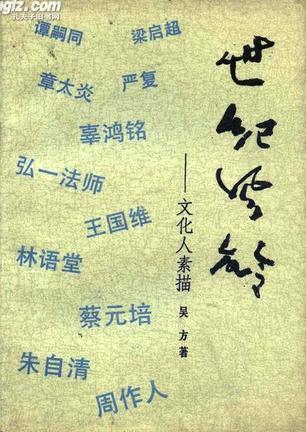 ngfz.com
孔夫子旧书网
谭嗣同 梁启超
章太炎 严复
辜鸿铭
弘一法师
王国维
林语堂
蔡元培
朱自清
周作人
世纪风铃
——文化人素描
吴方著